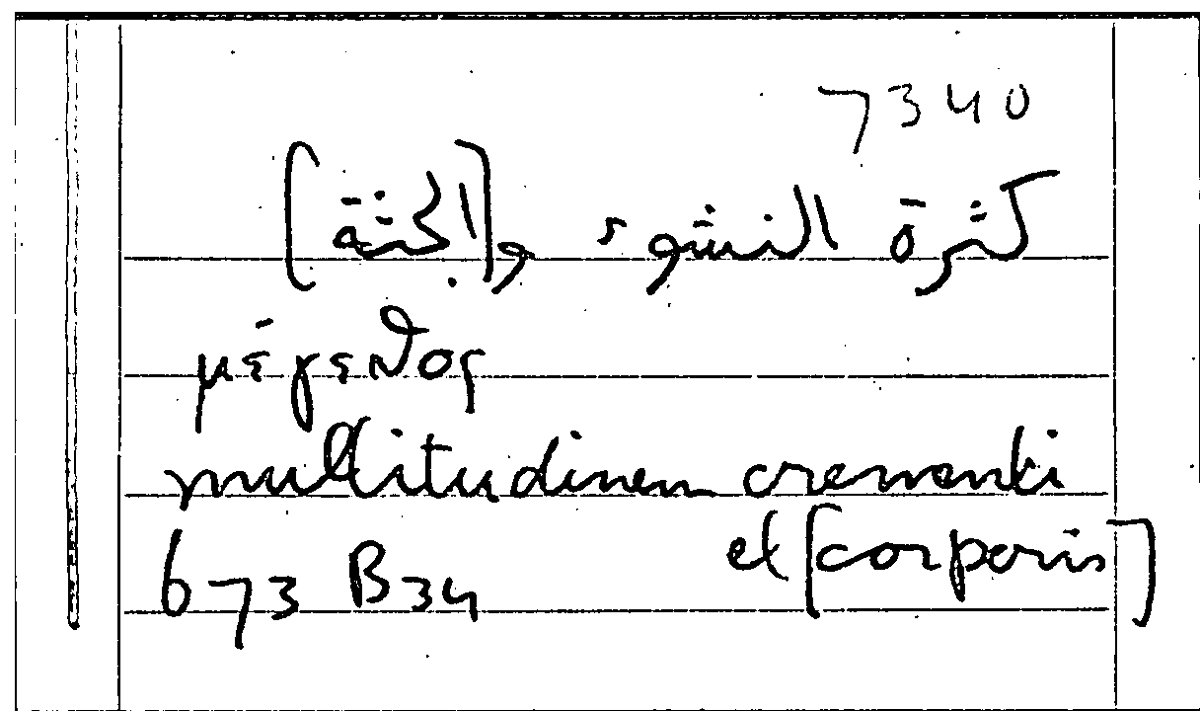 7340
كثرة النشوء و[الجثة]
μέγεθος
multitudinem crementi
et [corporis]
673 B34